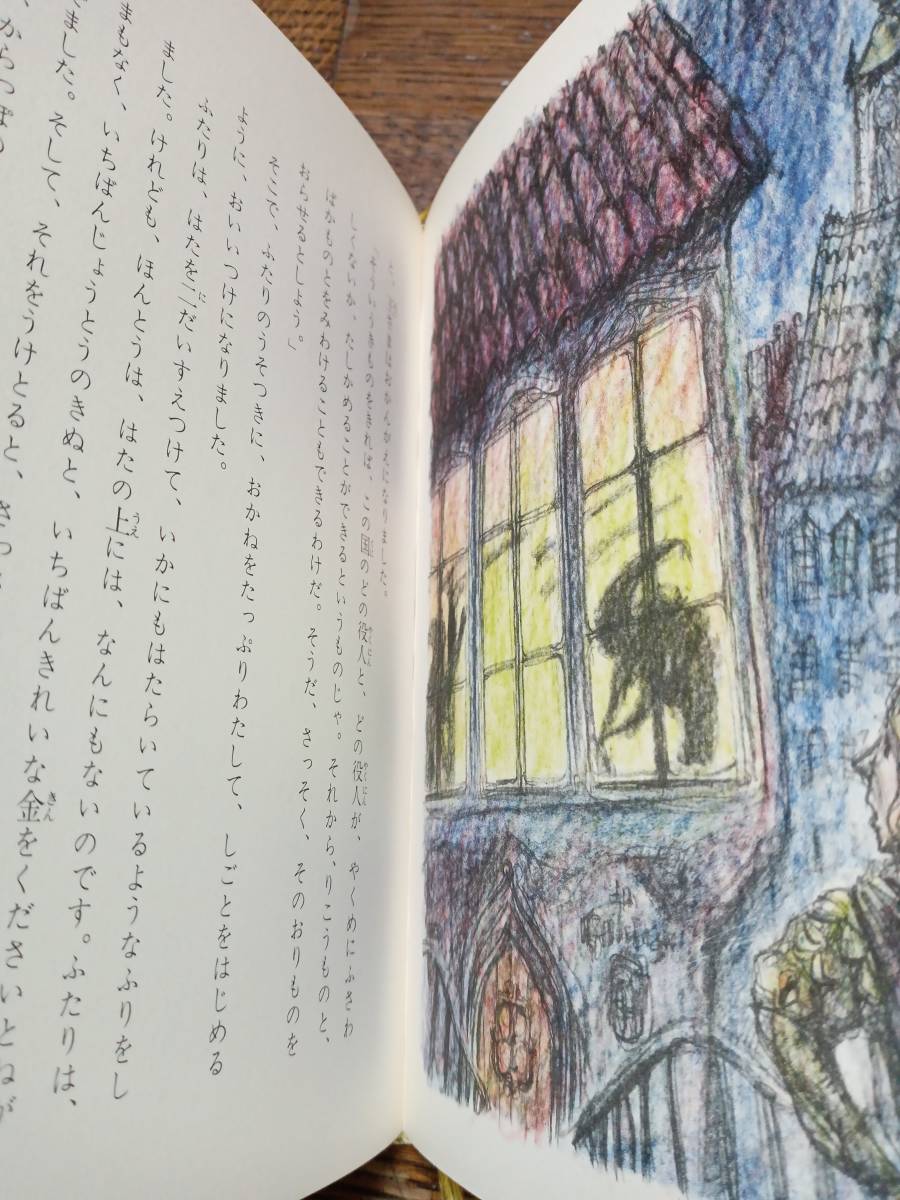 おうさまはおかんがえになりました。
「そういうきものをきれば、この国のどの役人と、どの役人が、やくめにふさわ
しくないか、たしかめることができるというものじゃ。それから、りこうものと、
ばかものとをみわけることもできるわけだ。そうだ、さっそく、そのおりものを
おらせるとしよう。」
そこで、ふたりのうそつきに、おかねをたっぷりわたして、しごとをはじめる
ように、おいいつけになりました。
ふたりは、はたを二だいすえつけて、いかにもはたらいているようなふりをし
ました。けれども、ほんとうは、はたの上には、なんにもないのです。ふたりは、
まもなく、いちばんじょうとうのきぬと、いちばんきれいな金をくださいとねが
ました。そして、それをうけとると、さっ